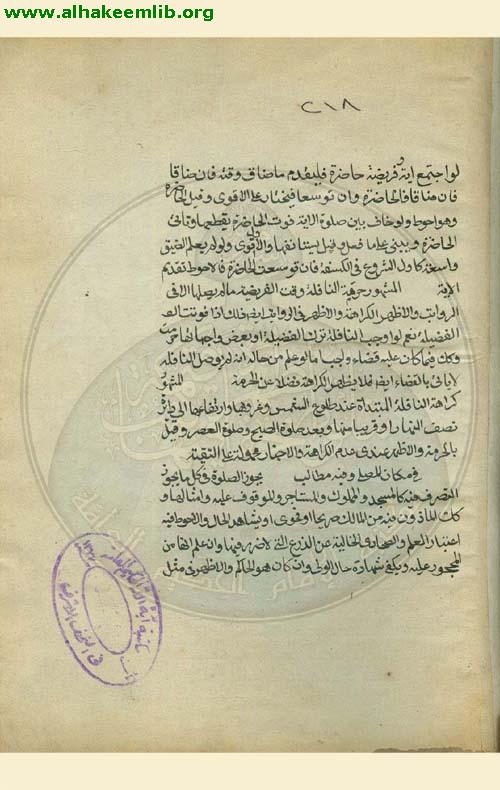 www.alhakeemlib.org
٢١٨
لو اجتمع اية وفريضة حاضرة فليقدم ما ضاق وقته فان ضاقا
فالحاضرة وان توسعا فيتخير على الاقوى وقيل الحاضرة
وهو احوط ولو خاف بين صلوة الاية فوت الحاضرة يقطعها وياتى
الحاضرة ويبنى على ما فعل وقيل يستانفها والاقوى ولو لم يعلم الضيق
الاية المشهور حرمة النافلة وقت الفريضة مالم يصلها الا فى
الرواتب والاظهر الكراهة والاظهر فى الرواتب
الفضيلة نعم لو اوجب النافلة ترك الفضيلة او بعض واجباتها
وكك فيما كان عليه قضاء واجب ما لو علم من حاله انه لو لم يصل النافلة
لا ياتى بالقضاء ايضا فلا يظهر الكراهة فضلا عن الحرمة المشهور
كراهة النافلة المبتدأة عند طلوع الشمس وغروبها وارتفاعها الى دائرة
نصف النهار او قريبا منها وبعد صلوة الصبح وصلوة العصر وقيل
بالحرمة والاظهر عندى عدم الكراهة والاخبار محمولة على التقية
فى مكان المصلى وفيه مطالب يجوز الصلوة فى كل ما يجوز
التصرف فيه كالمسجد والمملوك والمستاجر والموقوف عليه وامثالها و
كك الماذون فيه من المالك صريحا او فحوى او بشاهد الحال والاحوط فيه
اعتبار العلم والصحارى الخالية عن الزرع التى لا ضرر فيها وان علم انها من
المحجور عليه ويكفى شهادة حال الولى وان كان هو الحاكم والاظهر فى مثل